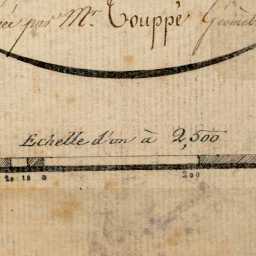 par Mr Touppé Géomèt
Echelle d'un à 2,500
20 10 0 200